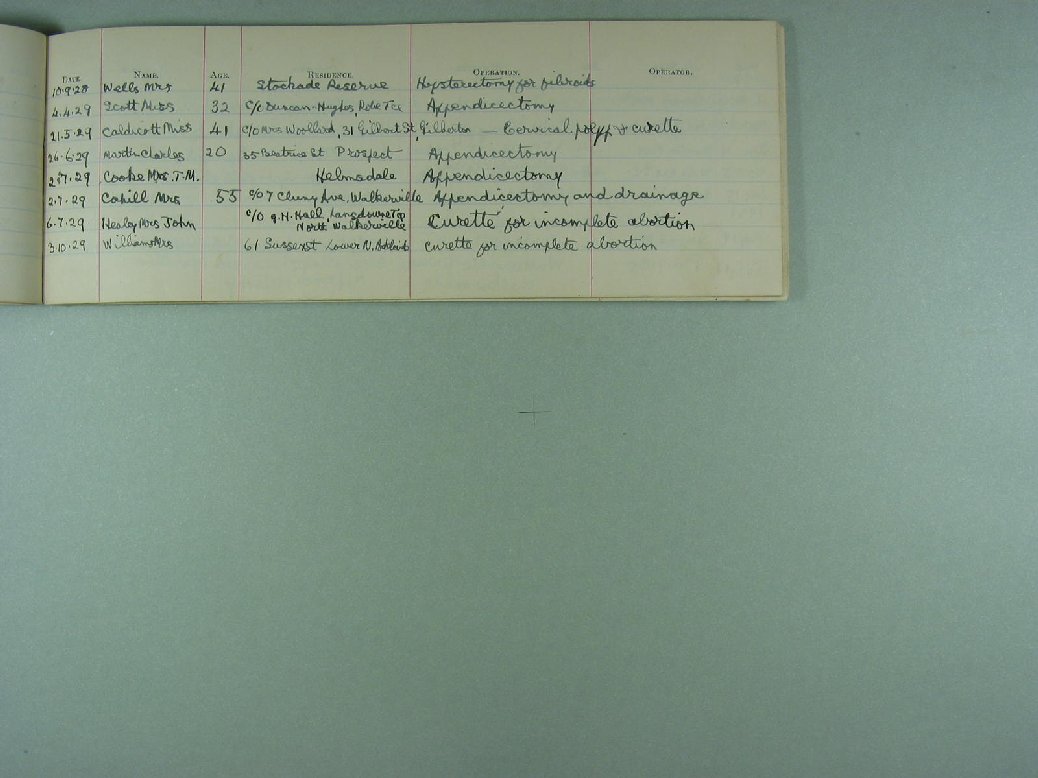 DATE. NAME. AGE. RESIDENCE. OPERATION. OPERATOR.
10.9.28 Wells Mrs 41 Stockade Reserve Hysterectomy for fibroids
4.4.29 Scott Miss 32 C/o Duncan-Hughes, Role Tce Appendicectomy
21.5.29 Caldicott Miss 41 C/o Mrs Woollard, 31 Gilbert St, Gilberton — Cervical polyp & curette
26.6.29 Martin Charles 20 35 Beatrice St Prospect Appendicectomy
2.7.29 Cooke Mrs. T.M. Helmsdale Appendicectomy
2.7.29 Cahill Mrs 55 c/o 7 Cluny Ave, Walkerville Appendicectomy and drainage
6.7.29 Healey Mrs John C/o G.H. Hall, Lansdowne Tce Curette for incomplete abortion
North Walkerville
3.10.29 Williams Mrs 61 Sussex St Lower N. Adelaide curette for incomplete abortion